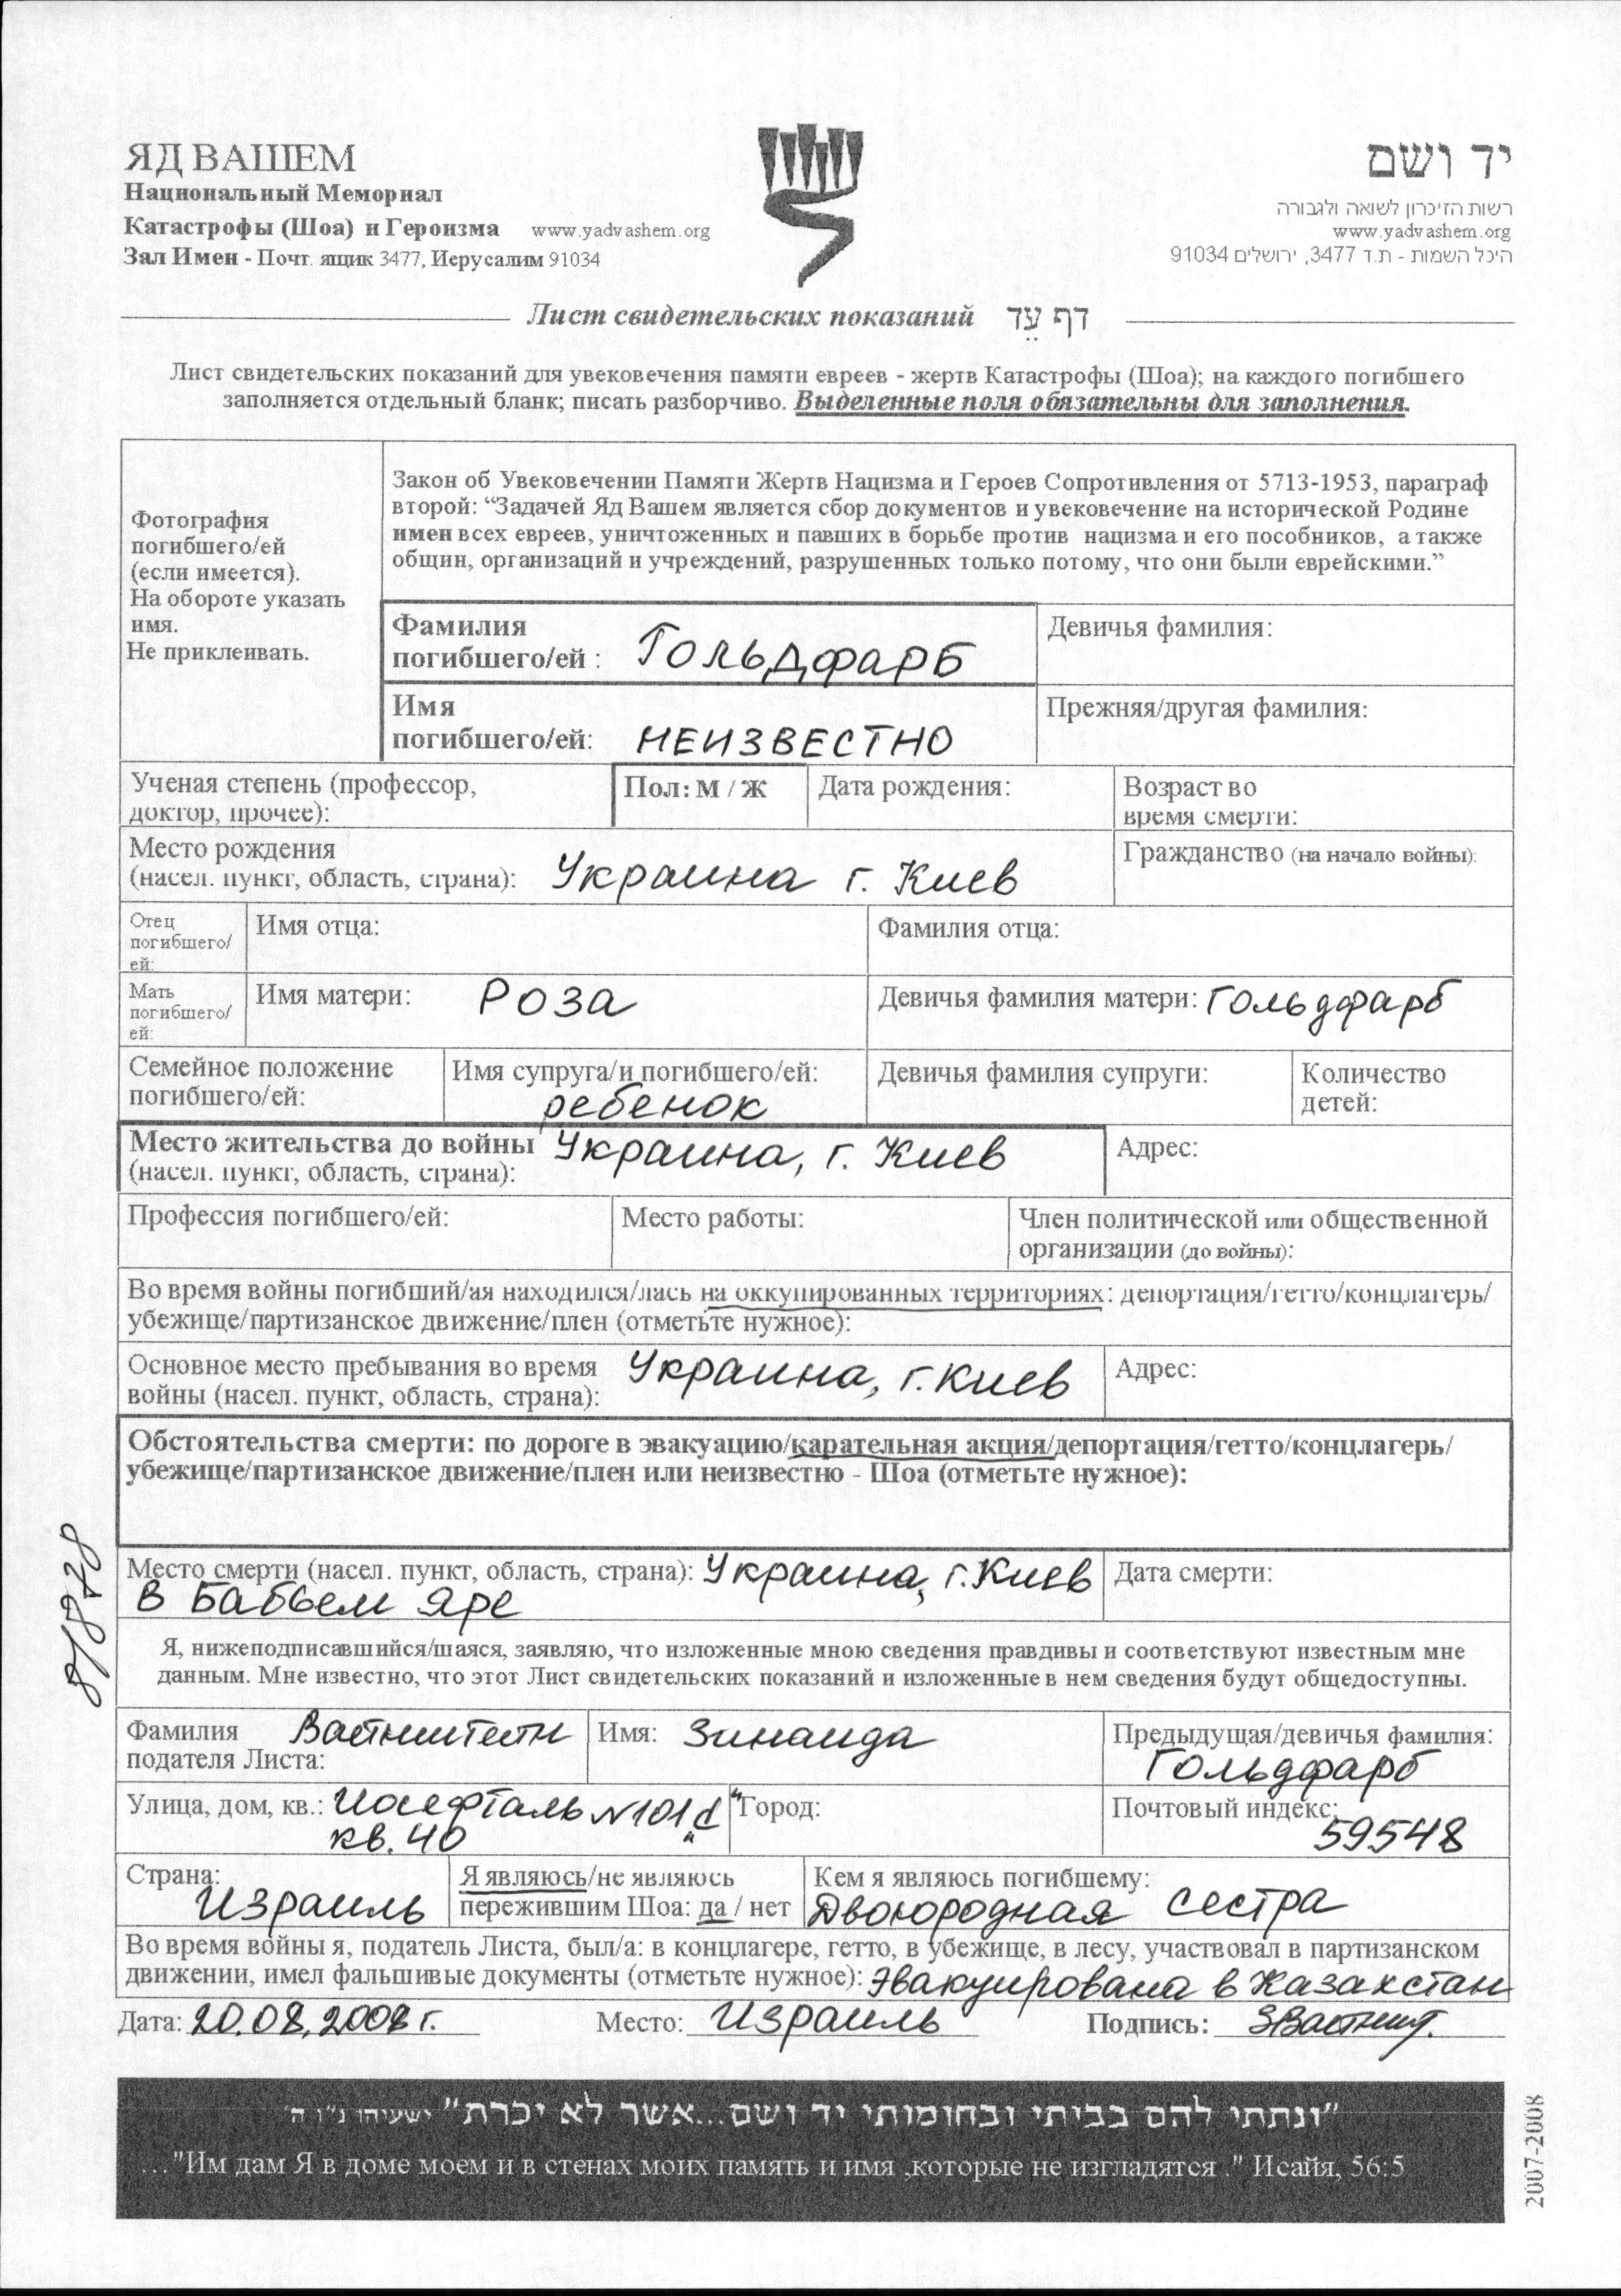 ЯД ВАШЕМ
Национальный Мемориал
Катастрофы (Шоа) и Героизма www.yadvashem.org
Зал Имен - Почт. ящик 3477, Иерусалим 91034
יד ושם
רשות הזיכרון לשואה ולגבורה
www.yadvashem.org
היכל השמות - ת.ד 3477, ירושלים 91034
Лист свидетельских показаний דף עֵד
Лист свидетельских показаний для увековечения памяти евреев - жертв Катастрофы (Шоа); на каждого погибшего
заполняется отдельный бланк; писать разборчиво. Выделенные поля обязательны для заполнения.
Фотография
погибшего/ей
(если имеется).
На обороте указать
имя.
Не приклеивать.
Закон об Увековечении Памяти Жертв Нацизма и Героев Сопротивления от 5713-1953, параграф
второй: “Задачей Яд Вашем является сбор документов и увековечение на исторической Родине
имен всех евреев, уничтоженных и павших в борьбе против нацизма и его пособников, а также
общин, организаций и учреждений, разрушенных только потому, что они были еврейскими.”
Фамилия
погибшего/ей : Гольдфарб
Девичья фамилия:
Имя
погибшего/ей: НЕИЗВЕСТНО
Прежняя/другая фамилия:
Ученая степень (профессор,
доктор, прочее):
Пол: М / Ж
Дата рождения:
Возраст во
время смерти:
Место рождения
(насел. пункт, область, страна): Украина г. Киев
Гражданство (на начало войны):
Отец
погибшего/
ей:
Имя отца:
Фамилия отца:
Мать
погибшего/
ей:
Имя матери: Роза
Девичья фамилия матери: Гольдфарб
Семейное положение
погибшего/ей:
Имя супруга/и погибшего/ей:
ребенок
Девичья фамилия супруги:
Количество
детей:
Место жительства до войны Украина, г. Киев
(насел. пункт, область, страна):
Адрес:
Профессия погибшего/ей:
Место работы:
Член политической или общественной
организации (до войны):
Во время войны погибший/ая находился/лась на оккупированных территориях: депортация/гетто/концлагерь/
убежище/партизанское движение/плен (отметьте нужное):
Основное место пребывания во время
войны (насел. пункт, область, страна): Украина, г. Киев
Адрес:
Обстоятельства смерти: по дороге в эвакуацию/карательная акция/депортация/гетто/концлагерь/
убежище/партизанское движение/плен или неизвестно - Шоа (отметьте нужное):
Место смерти (насел. пункт, область, страна): Украина, г. Киев
в Бабьем Яре
Дата смерти:
Я, нижеподписавшийся/шаяся, заявляю, что изложенные мною сведения правдивы и соответствуют известным мне
данным. Мне известно, что этот Лист свидетельских показаний и изложенные в нем сведения будут общедоступны.
Фамилия Вайнштейн
подателя Листа:
Имя: Зинаида
Предыдущая/девичья фамилия:
Гольдфарб
Улица, дом, кв.: Иосефталь №101 "С"
кв. 40
Город:
Почтовый индекс:
59548
Страна:
Израиль
Я являюсь/не являюсь
пережившим Шоа: да / нет
Кем я являюсь погибшему:
Двоюродная сестра
Во время войны я, податель Листа, был/а: в концлагере, гетто, в убежище, в лесу, участвовал в партизанском
движении, имел фальшивые документы (отметьте нужное): Эвакуирована в Казахстан
Дата: 20.08.2008 г. Место: Израиль Подпись: ЗВайншт.
"ונתתי להם בביתי ובחומותי יד ושם...אשר לא יכרת" ישעיהו נ"ו ה'
..."Им дам Я в доме моем и в стенах моих память и имя ,которые не изгладятся ." Исайя, 56:5
2007-2008